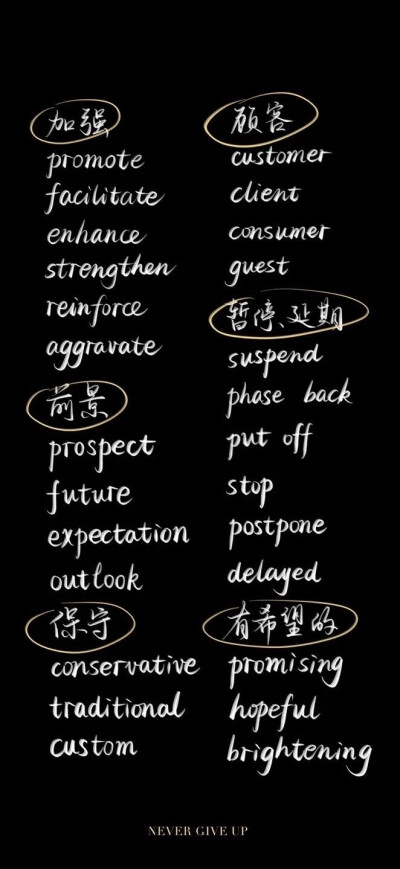 加强
promote
facilitate
enhance
strengthen
reinforce
aggravate
前景
prospect
future
expectation
outlook
保守
conservative
traditional
custom
顾客
customer
client
consumer
guest
暂停、延期
suspend
phase back
put off
stop
postpone
delayed
有希望的
promising
hopeful
brightening
NEVER GIVE UP